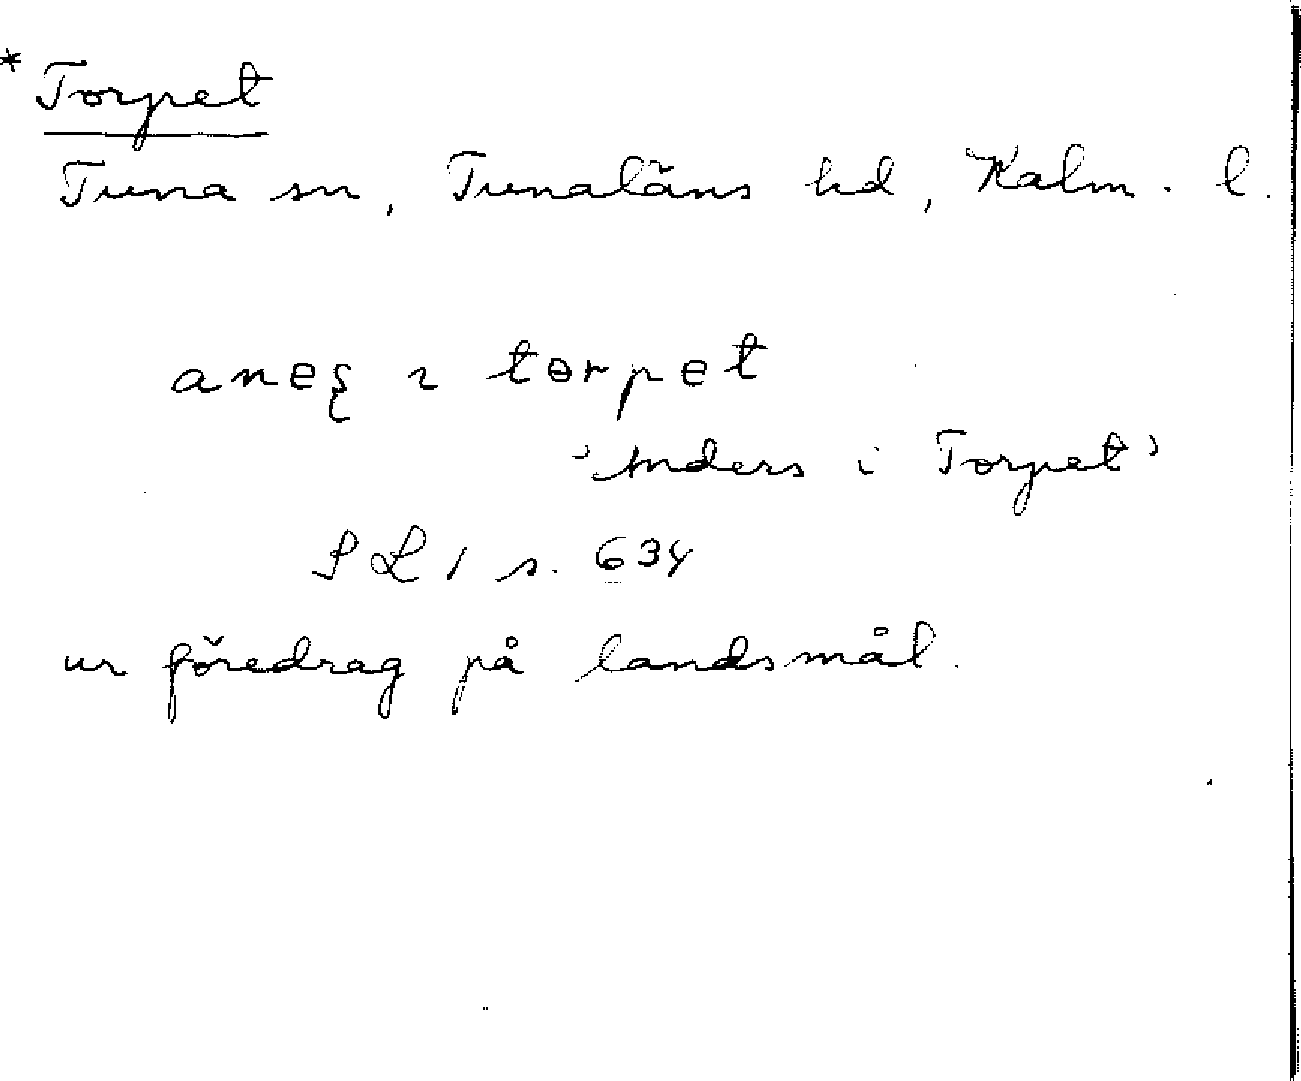 * Torpet
Tuna sn, Tunaläns hd, Kalm. l.
i torpet
'Anders i Torpet'
SL 1 s. 634
ur föredrag på landsmål.